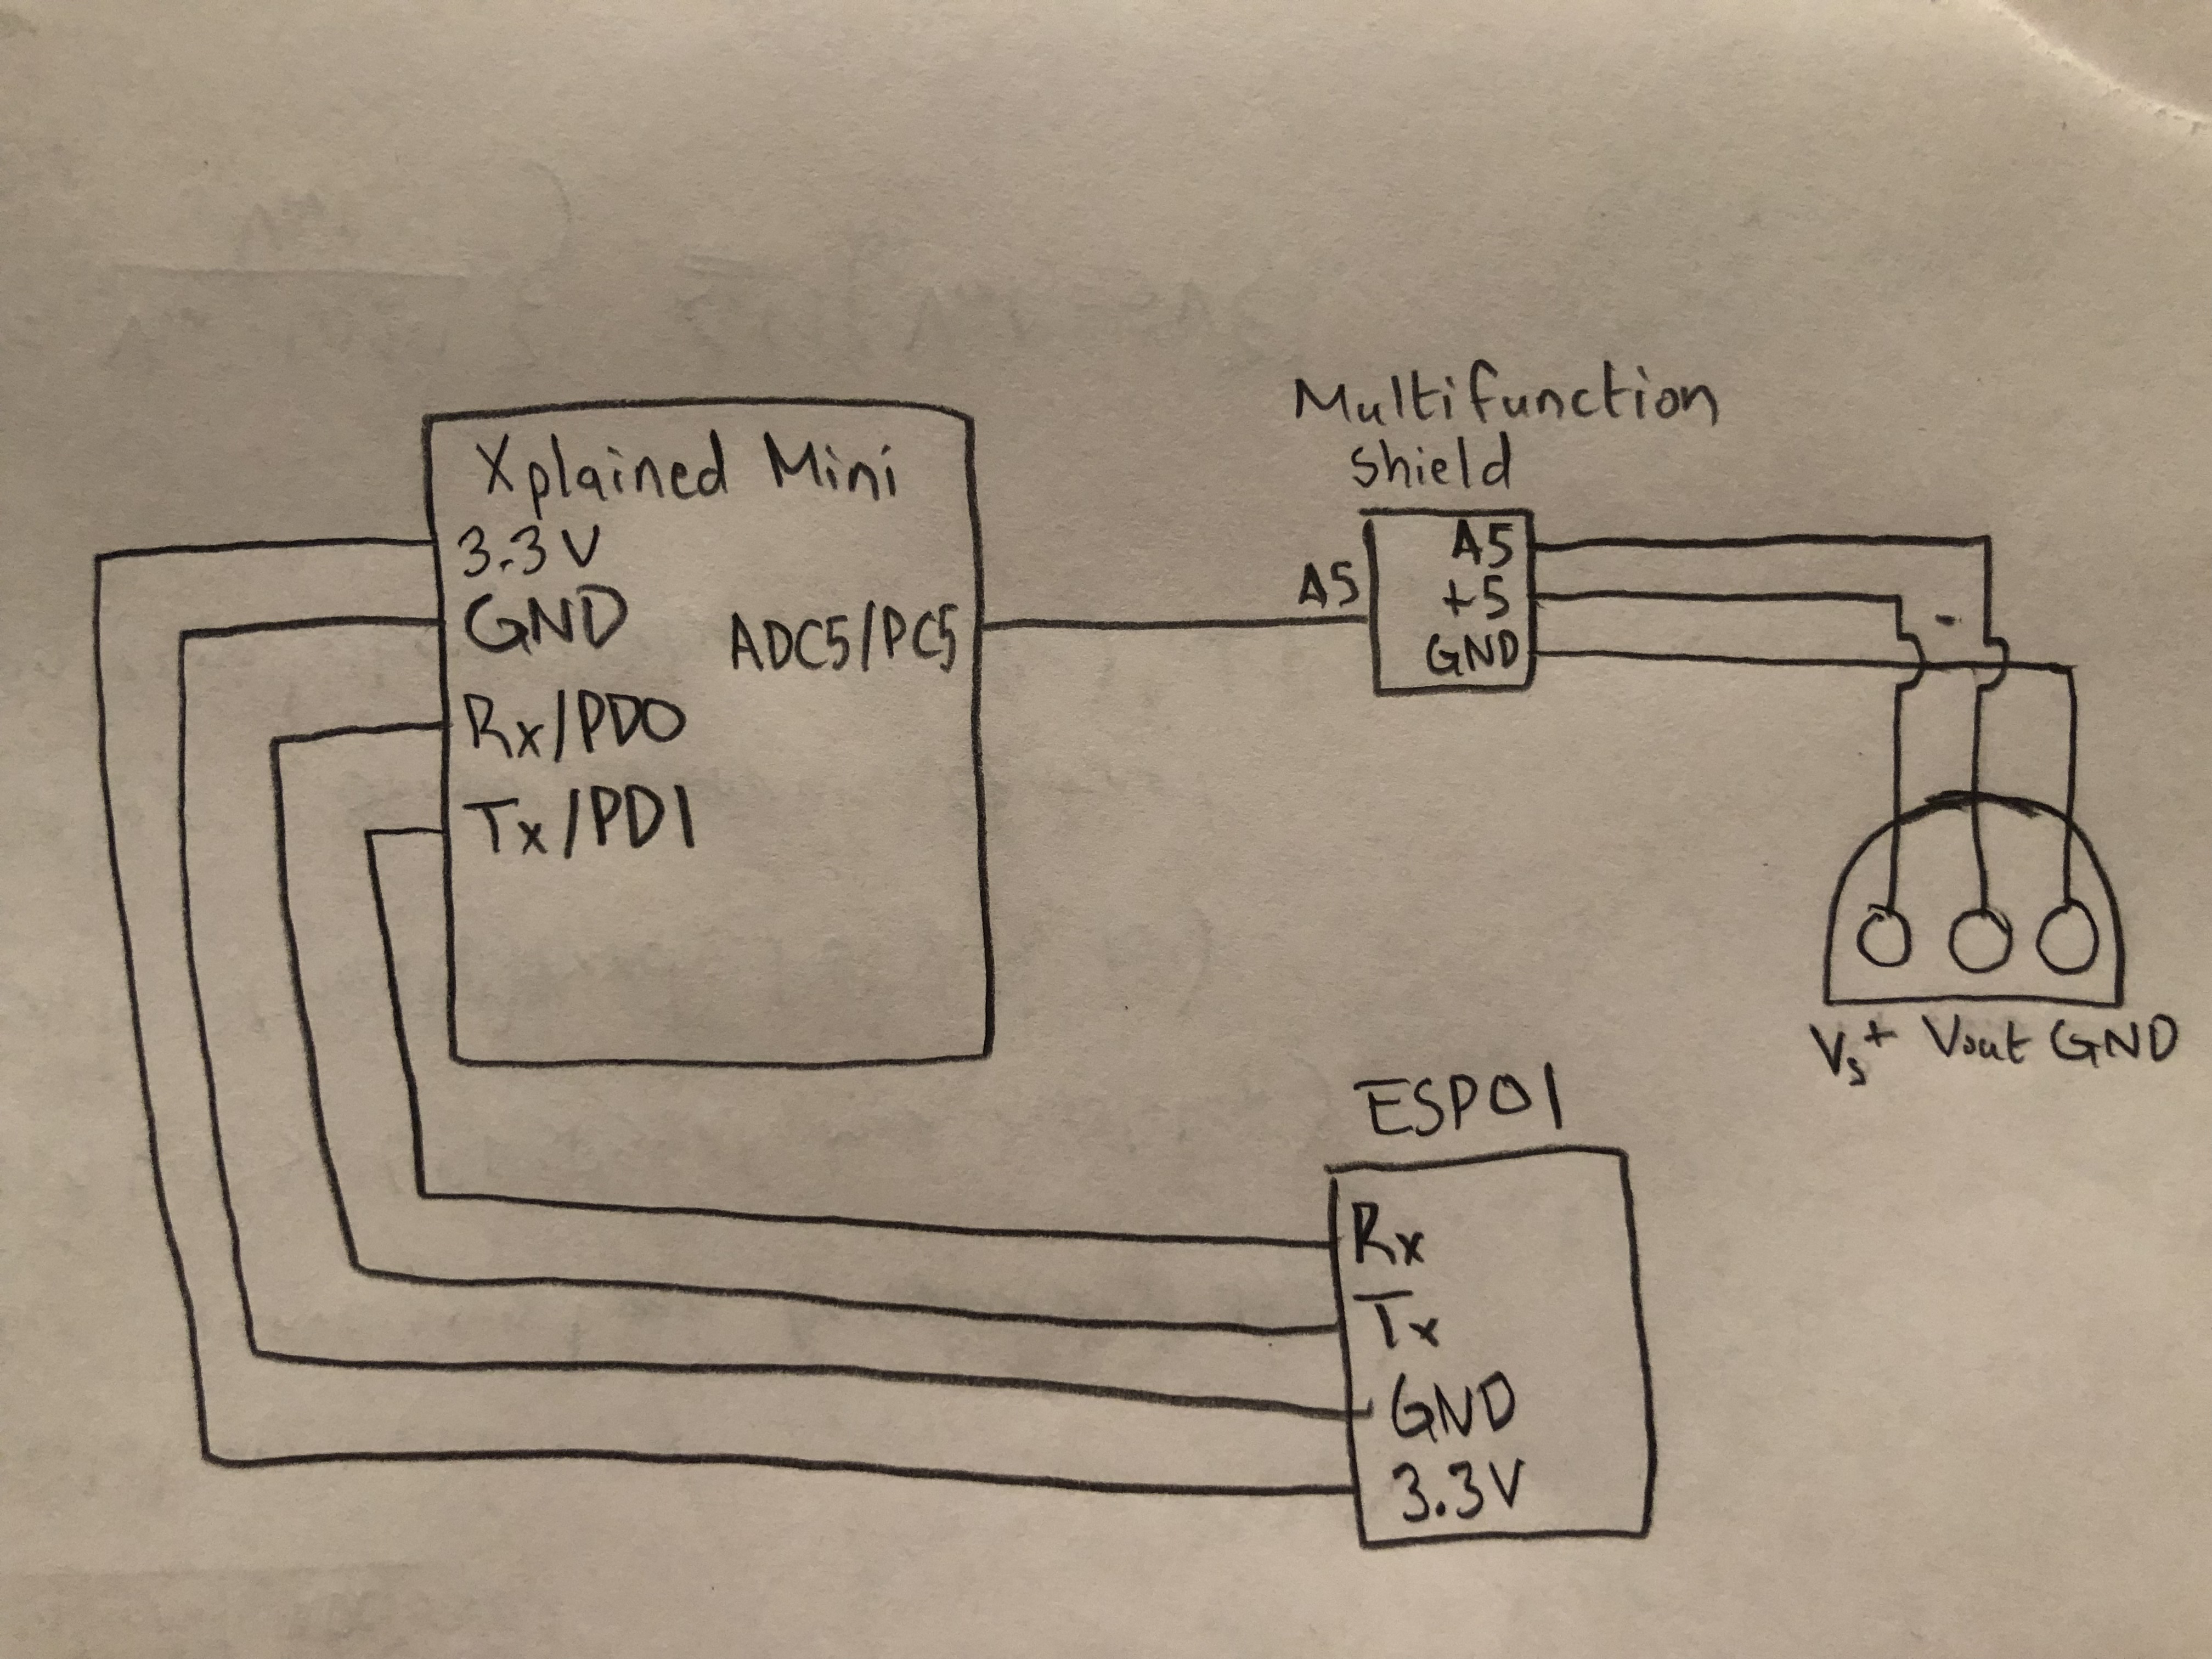 Xplained Mini
3.3V
GND
ADC5/PC5
Rx/PD0
Tx/PD1
Multifunction
Shield
A5
A5
+5
GND
Vs+ Vout GND
ESP01
Rx
Tx
GND
3.3V